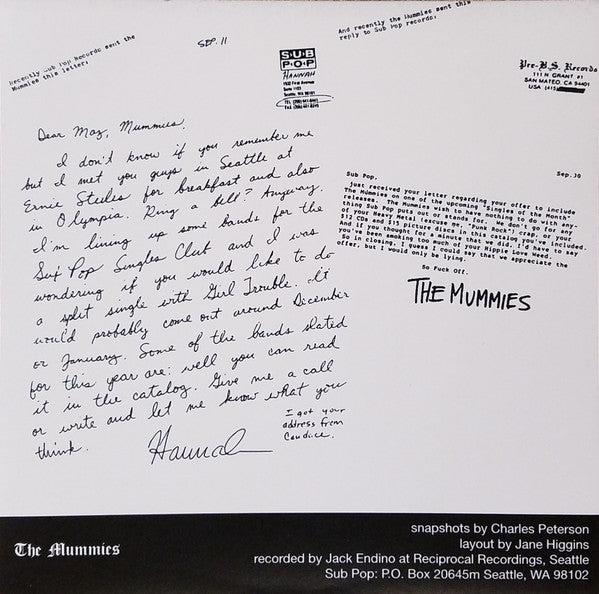 Recently Sub Pop Records sent the
Mummies this letter:
SEP. 11
SUB
POP
HANNAH
1932 First Avenue
Suite 1103
Seattle, WA 98101
TEL (206) 441-8441
FAX (206) 441-8245
And recently the Mummies sent this
reply to Sub Pop records:
Pre-B.S. Records
111 N GRANT #1
SAN MATEO, CA 94401
USA (415)
Dear Maz, Mummies,
I don't know if you remember me
but I met you guys in Seattle at
Ernie Steeles for breakfast and also
in Olympia. Ring a bell? Anyway.
I'm lining up some bands for the
Sub Pop Singles Club and I was
wondering if you would like to do
a split single with Girl Trouble. It
would probably come out around December
or January. Some of the bands slated
for this year are: well you can read
it in the catalog. Give me a call
or write and let me know what you
think.
Hannah
I got your
address from
Candice.
Sep. 30
Sub Pop,
Just received your letter regarding your offer to include
The Mummies on one of the upcoming "Singles of the Month"
releases. The Mummies wish to have nothing to do with any-
thing Sub Pop puts out or stands for. We don't go for any
of your Heavy Metal (excuse me, "Punk Rock") crap, or your
$12 CDs and $15 picture discs in this catalog you've included.
And if you thought for a minute that we did, I'd have to say
you've been smoking too much of your Hippie Love Weed.
So in closing, I guess I could say that we appreciate the
offer, but I would only be lying.
So Fuck Off.
THE MUMMIES
The Mummies
snapshots by Charles Peterson
layout by Jane Higgins
recorded by Jack Endino at Reciprocal Recordings, Seattle
Sub Pop: P.O. Box 20645m Seattle, WA 98102